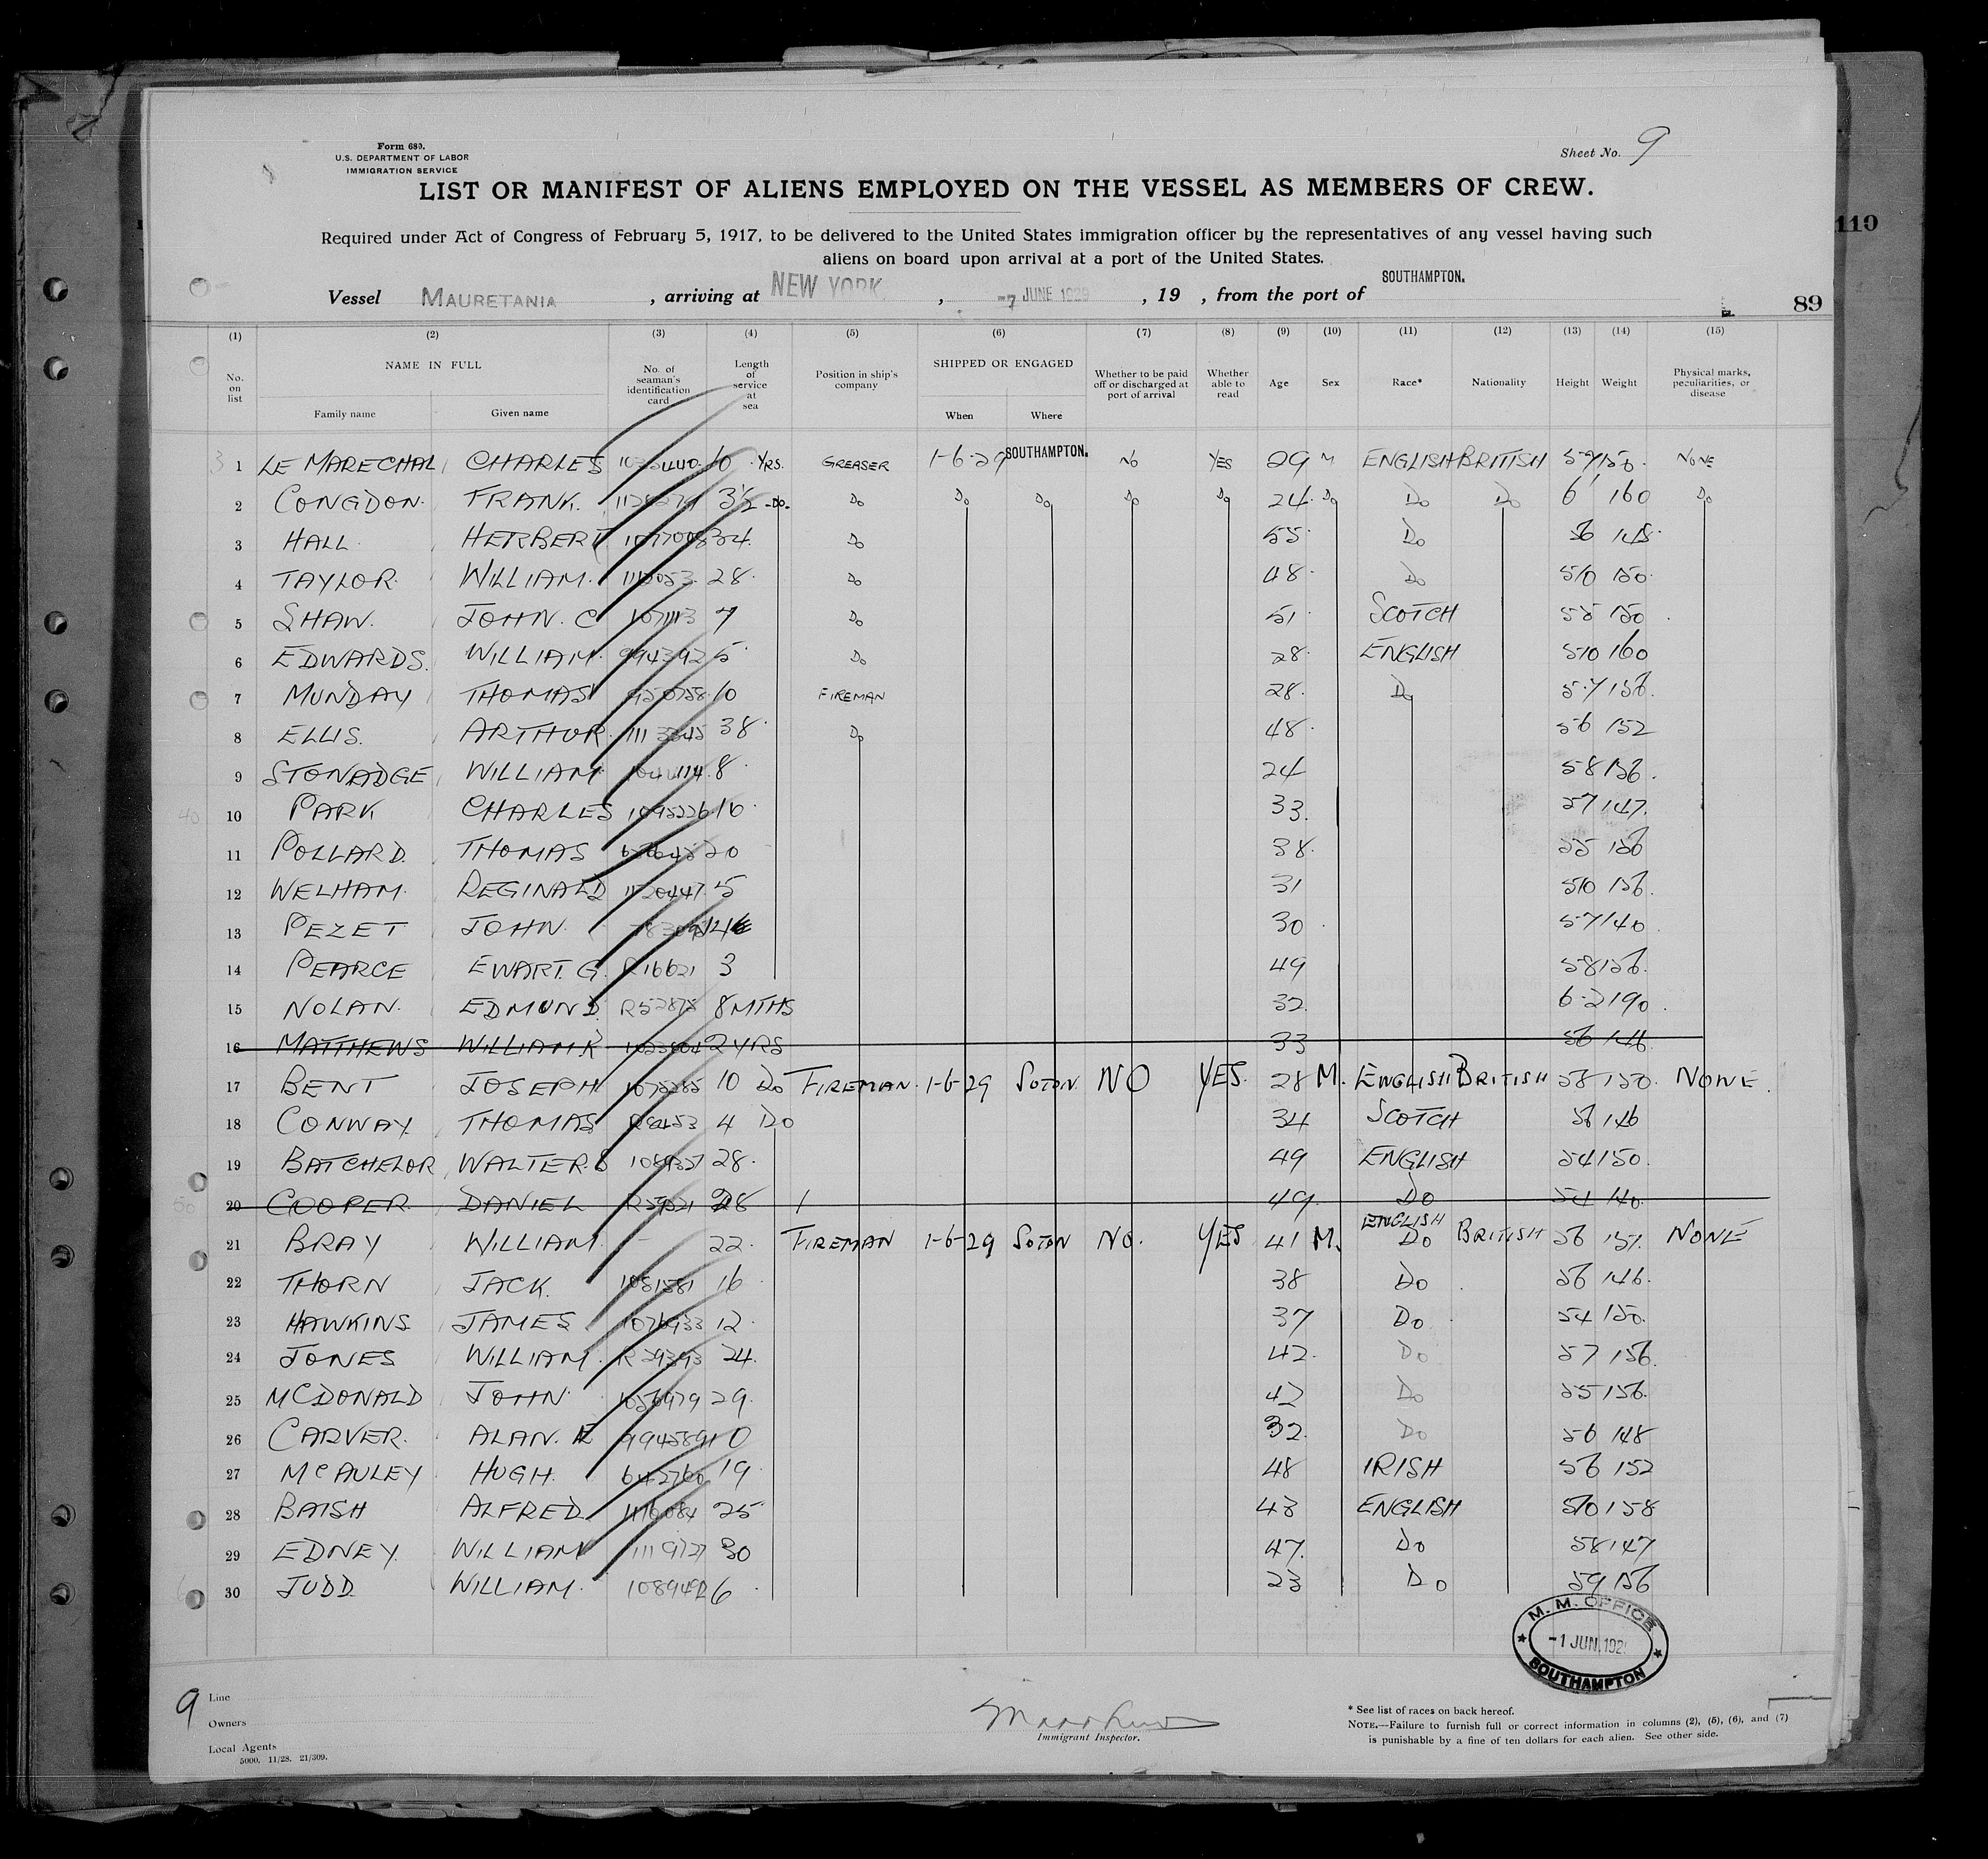 Form 680.
U.S. DEPARTMENT OF LABOR
IMMIGRATION SERVICE
Sheet No. 9
LIST OR MANIFEST OF ALIENS EMPLOYED ON THE VESSEL AS MEMBERS OF CREW.
Required under Act of Congress of February 5, 1917, to be delivered to the United States immigration officer by the representatives of any vessel having such
aliens on board upon arrival at a port of the United States.
110
Vessel MAURETANIA, arriving at NEW YORK, -7 JUNE 1929, 19 , from the port of SOUTHAMPTON.
89
(1) (2) (3) (4) (5) (6) (7) (8) (9) (10) (11) (12) (13) (14) (15)
No. on list NAME IN FULL Family name Given name No. of seaman's identification card Length of service at sea Position in ship's company SHIPPED OR ENGAGED When Where Whether to be paid off or discharged at port of arrival Whether able to read Age Sex Race* Nationality Height Weight Physical marks, peculiarities, or disease
1 LE MARECHAL CHARLES 10 YRS. GREASER 1-6-29 SOUTHAMPTON. NO YES 29 M ENGLISH BRITISH 5 9 150 NONE
2 CONGDON FRANK 3½ -DO- DO DO DO DO DO 24 DO DO DO 6' 160 DO
3 HALL HERBERT 34 DO 55 DO 56 148
4 TAYLOR WILLIAM 28 DO 48 DO 510 150
5 SHAW JOHN. C 7 DO 51 SCOTCH 55 150
6 EDWARDS WILLIAM 5 DO 28 ENGLISH 510 160
7 MUNDAY THOMAS 10 FIREMAN 28 DO 5-7 156
8 ELLIS ARTHUR 38 DO 48 56 152
9 STONADGE WILLIAM 8 24 58 156
10 PARK CHARLES 1095226 10 33 57 147
11 POLLARD THOMAS 20 38 55 156
12 WELHAM REGINALD 5 31 510 156
13 PEZET JOHN 30 57 140
14 PEARCE EWART. G. R16621 3 49 58 156
15 NOLAN EDMUND 8 MTHS 32 6-2 190
16 MATTHEWS WILLIAM R 2 YRS 33 56 146
17 BENT JOSEPH 10 DO FIREMAN 1-6-29 SOTON NO YES 28 M. ENGLISH BRITISH 58 150 NONE
18 CONWAY THOMAS 4 DO 34 SCOTCH 56 146
19 BATCHELOR WALTER 28 49 ENGLISH 54 150
20 COOPER DANIEL 28 49 DO 54 140
21 BRAY WILLIAM - 22 FIREMAN 1-6-29 SOTON NO. YES 41 M. ENGLISH DO BRITISH 56 151 NONE
22 THORN JACK 1081581 16 38 DO 56 146
23 HAWKINS JAMES 12 37 DO 54 150
24 JONES WILLIAM R 29393 24 42 DO 57 156
25 MCDONALD JOHN 29 42 DO 55 156
26 CARVER ALAN. 994589 10 32 DO 56 148
27 MCAULEY HUGH 642760 19 48 IRISH 56 152
28 BAISH ALFRED 25 43 ENGLISH 510 158
29 EDNEY WILLIAM 1119727 30 47 DO 58 147
30 JUDD WILLIAM 6 23 DO 59 156
M. M. OFFICE
-1 JUN.192
SOUTHAMPTON
9 Line
Owners
Local Agents
5000. 11/28. 21/309.
Immigrant Inspector.
* See list of races on back hereof.
NOTE.—Failure to furnish full or correct information in columns (2), (5), (6), and (7)
is punishable by a fine of ten dollars for each alien. See other side.